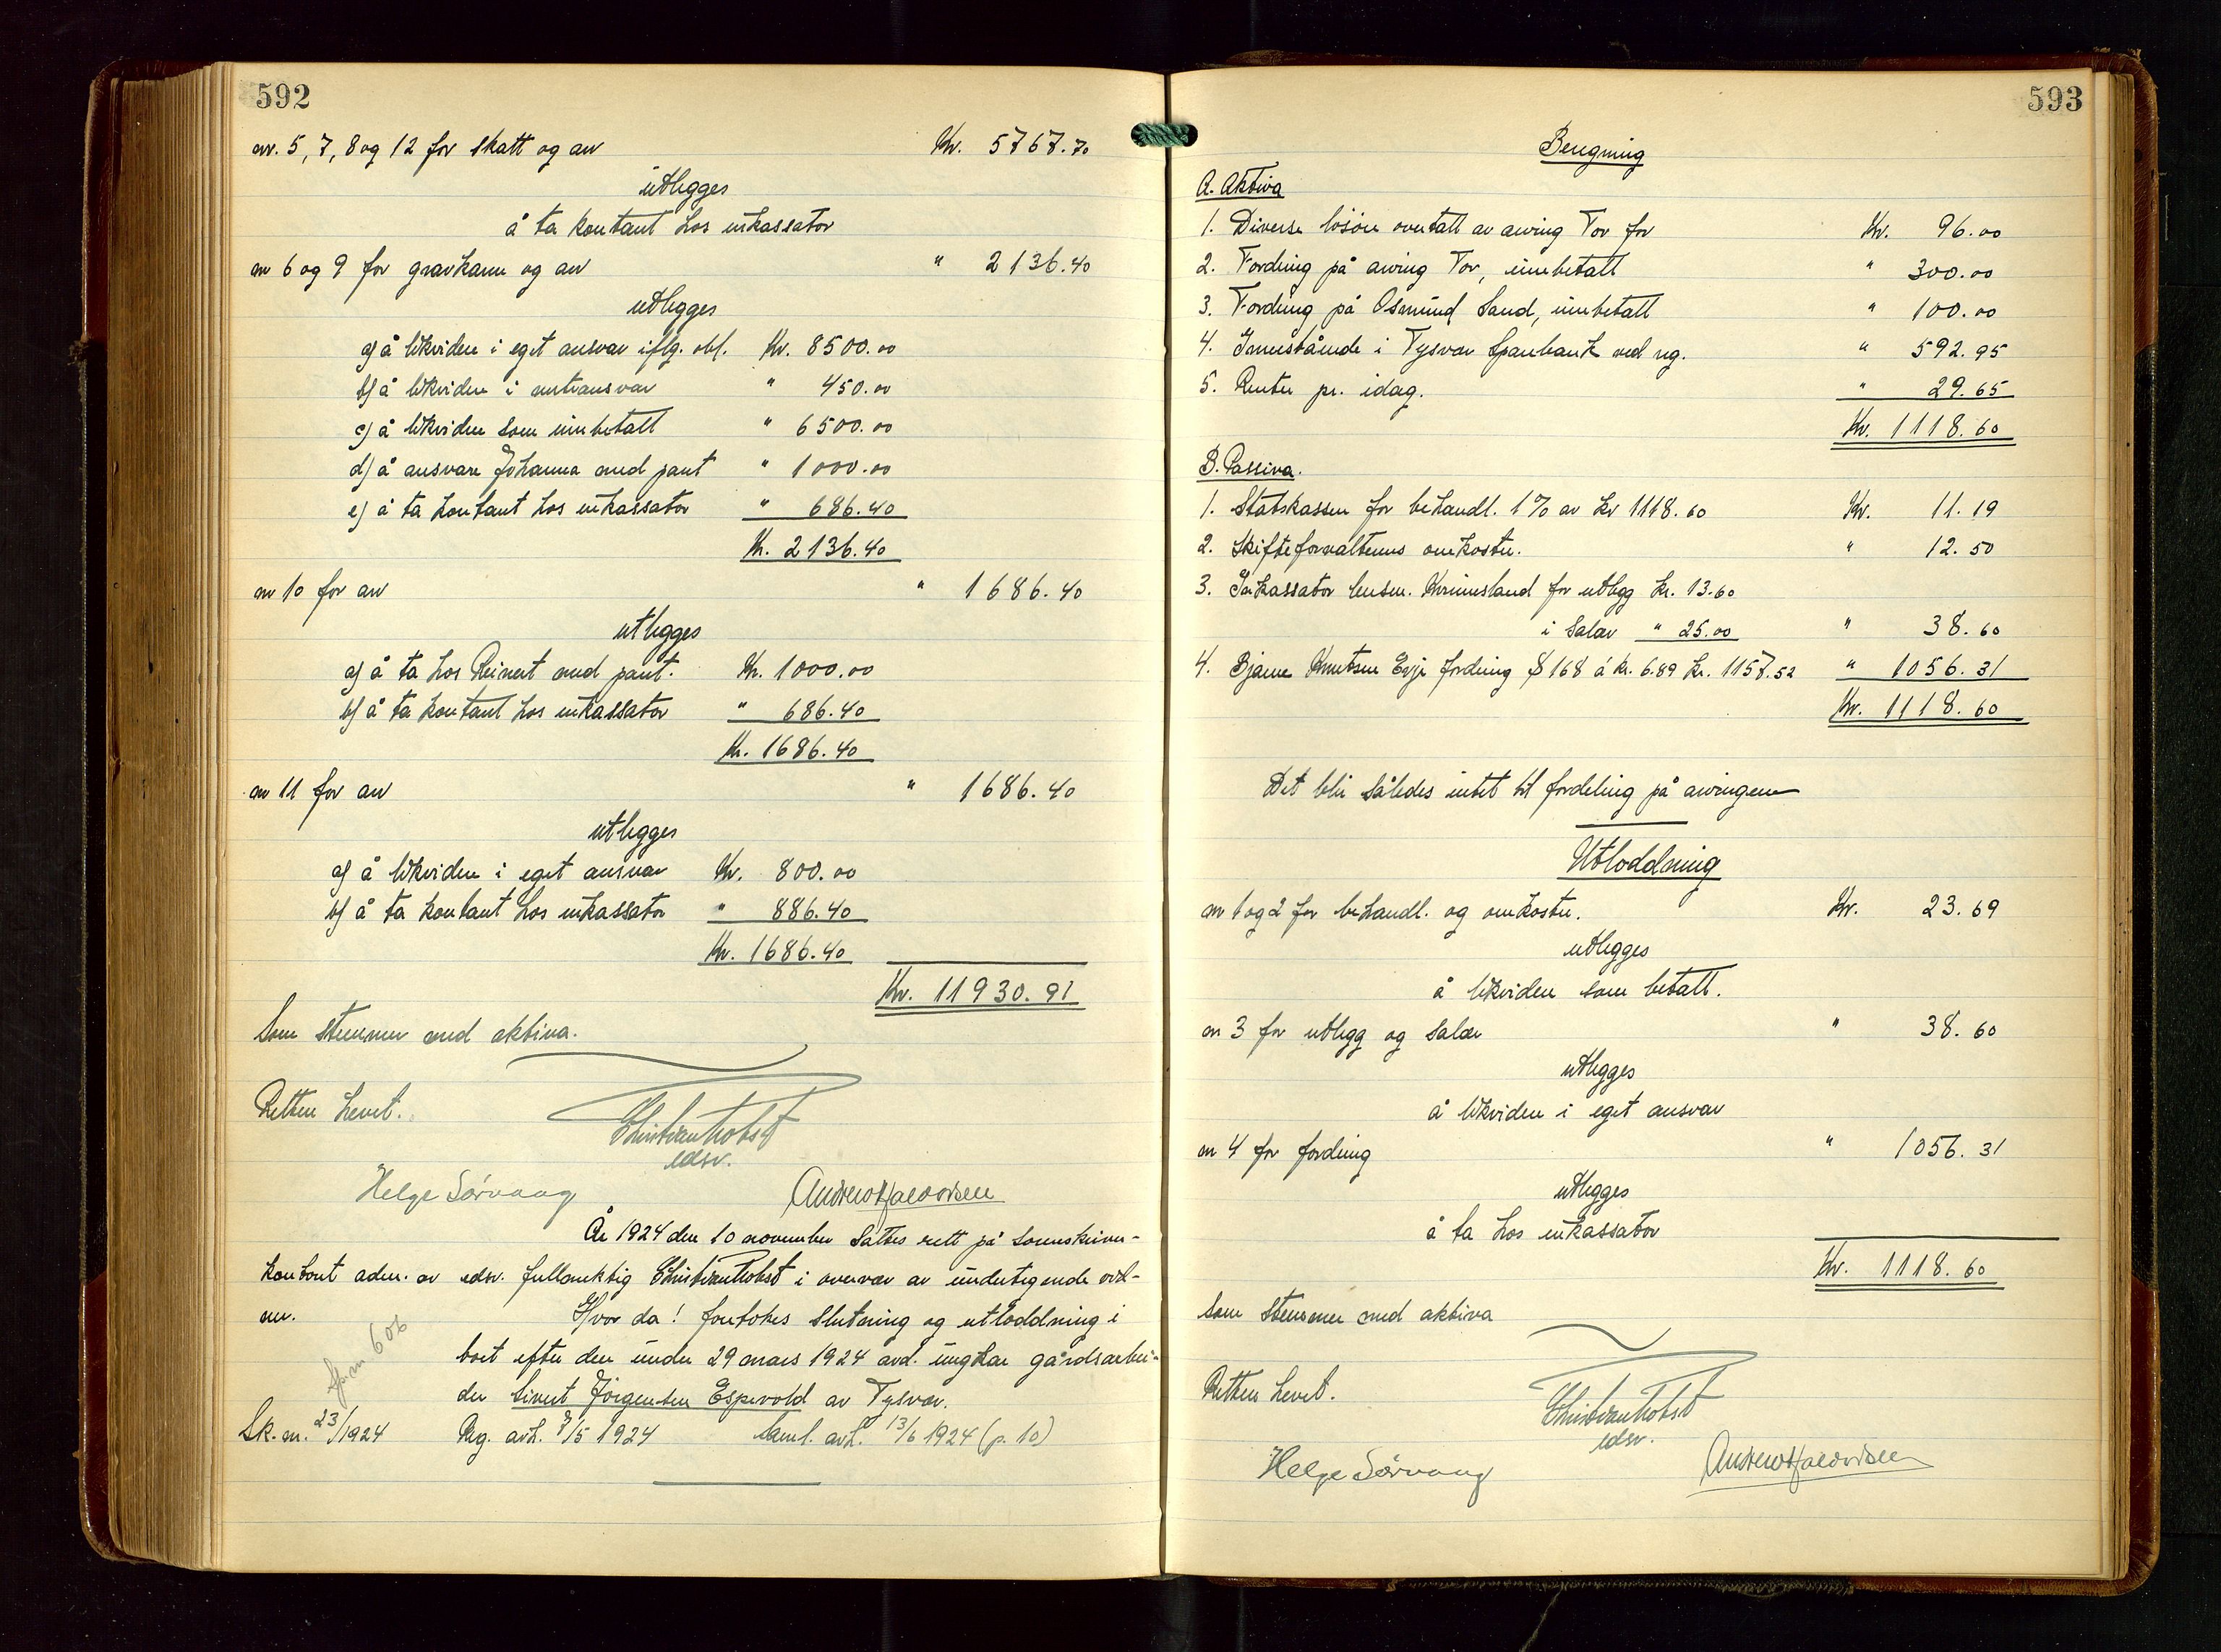 592
nr. 5, 7, 8 og 12 for skatt og arv Kr. 5767.70
utlegges
å ta kontant hos inkassator
nr 6 og 9 for gravkann og arv " 2136.40
utlegges
a) å likvidere i eget ansvar iflg. obl. Kr. 8500.00
b) å likvidere i " 450.00
c) å likvidere som innbetalt " 6500.00
d) å ansvare Johanna med pant " 1000.00
e) å ta kontant hos inkassator " 686.40
Kr. 2136.40
nr 10 for arv " 1686.40
utlegges
a) å ta hos Reinert med pant. Kr. 1000.00
b) å ta kontant hos inkassator " 686.40
Kr. 1686.40
nr 11 for arv " 1686.40
utlegges
a) å likvidere i eget ansvar Kr. 800.00
b) å ta kontant hos inkassator " 886.40
Kr. 1686.40
Kr. 11930.91
Som stemmer med aktiva.
Retten hevet.
Christian Hobst
edsv.
Helge Sørvaag Andrew Halvorsen
År 1924 den 10 november sattes rett på sorenskriver-
kontoret adm. av edsv. fullmektig Christian Hobst i overvær av undertegnede vid-
ner. Hvor da! foretokes slutning og utloddning i
boet efter den under 29 mars 1924 avd. ungkar gårdsarbei-
der Sivert Jörgensen Espevold av Tysvær.
nr 606
Sk. nr. 23/1924 Reg. avh. 7/5 1924 Saml. avh. 13/6 1924 (p. 10)
593
Beregning
A. Aktiva
1. Diverse lösöre overtatt av arving Tor for Kr. 96.00
2. Fordring på arving Tor, innbetalt " 300.00
3. Fordring på Osmund Sand, innbetalt " 100.00
4. Innestående i Tysvær Sparebank ved reg. " 592.95
5. Renter pr. idag. " 29.65
Kr. 1118.60
B. Passiva.
1. Statskassen for behandl. 1% av kr 1118.60 Kr. 11.19
2. Skifteforvalterens omkostn. " 12.50
3. Inkassator lensm. for utlegg kr. 13.60
i salær " 25.00 " 38.60
4. Bjarne Knutsen Evje fordring $ 168 á kr. 6.89 kr. 1157.52 " 1056.31
Kr. 1118.60
Det blir således intet til fordeling på arvingene
Utloddning
nr 1 og 2 for behandl. og omkostn. Kr. 23.69
utlegges
å likvidere som betalt.
nr 3 for utlegg og salær " 38.60
utlegges
å likvidere i eget ansvar
nr 4 for fordring " 1056.31
utlegges
å ta hos inkassator
Kr. 1118.60
Som stemmer med aktiva
Retten hevet.
Christian Hobst
edsv.
Helge Sørvaag Andrew Halvorsen